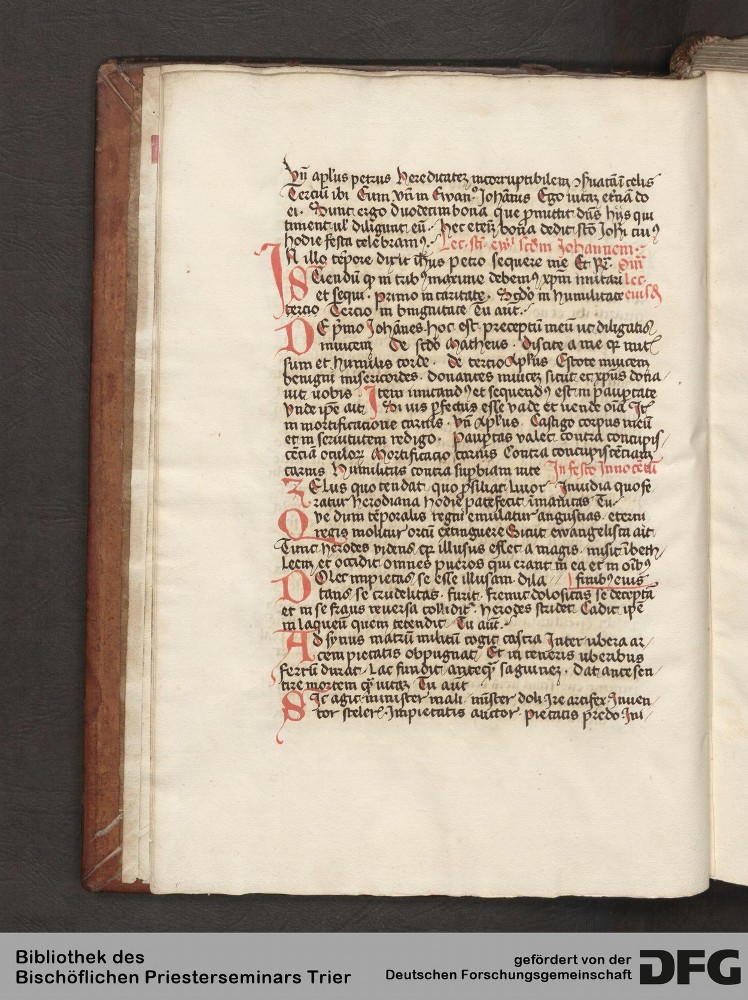 Vñ aplus petrus hereditatez incorruptibilem 9seruatã ĩ celis
Terciũ ibi Cum vñ in Ewan. Johãnis Ego vitaz etnã do
ei. Sunt ergo duodecim bona que pmittit dñs hijs qui
timent ul diligunt eũ. hec etem bona dedit sto Johi cui9
hodie festa celebram9. Lec. sti ewl scdm Johannem.
IN illo tẽpore dixit ihus petro sequere me Et Re. Sm
Sciendũ q in trib9 maxime debem9 xpm imitari lec.
et sequi. primo in caritate. Scdo in humilitate eiusd
tercio Tercio in bnignitate Tu aut.
DE pmo Johãnes. hoc est preceptũ meũ ut diligatis
inuicem De scdo Matheus. Discite a me qz mit
sum et humilis corde. de tercio Aplus Estote inuicem
benigni misericordes. donantes inuicez sicut et xpus dona
uit vobis Item imitand9 et sequend9 est in paupertate
vnde ipe ait. Si vis pfectus esse vade et uende oĩa It
in mortificatione carnis. vñ Aplus. Castigo corpus meũ
et in seruitutem redigo. paupertas valet contra concupis
cẽciã oculorz Mortificatio carnis Contra concupiscẽciam
carnis humilitas contra supbiam uite In festo Innocẽtũ
ZElus quo tendat quo psiliat liuor Inuidia quo fe
ratur herodiana hodie patefecit ĩmanitas Tu
Que dum tẽporalis regni emulatur angustias. eterni
regis molitur ortũ extinguere Sicut ewangelista ait
Tunc herodes videns qz illusus esset a magis. misit ĩ beth
leem et occidit omnes pueros qui erant in ea et in oĩb9
DOlet impietas se esse illusam. dila finib9 eius
tans se crudelitas. furit. fremit dolositas se deceptã
et in se fraus reuersa colliditr. herodes stridet Cadit ipe
in laqueũ quem tetendit Tu aut.
Ad synus matrũ militũ cogit castra Inter ubera ar
cem pietatis obpugnat Et in teneris uberibus
ferrũ durat. Lac fundit anteqz sanguinez. dat ante sen
tire mortem qz uitaz Tu aut
Sic agit minister mali. mĩster doli Ire artifex Inuen
tor sceleris. Impietatis auctor. pietatis predo Ini
Bibliothek des
Bischöflichen Priesterseminars Trier
gefördert von der
Deutschen Forschungsgemeinschaft
DFG